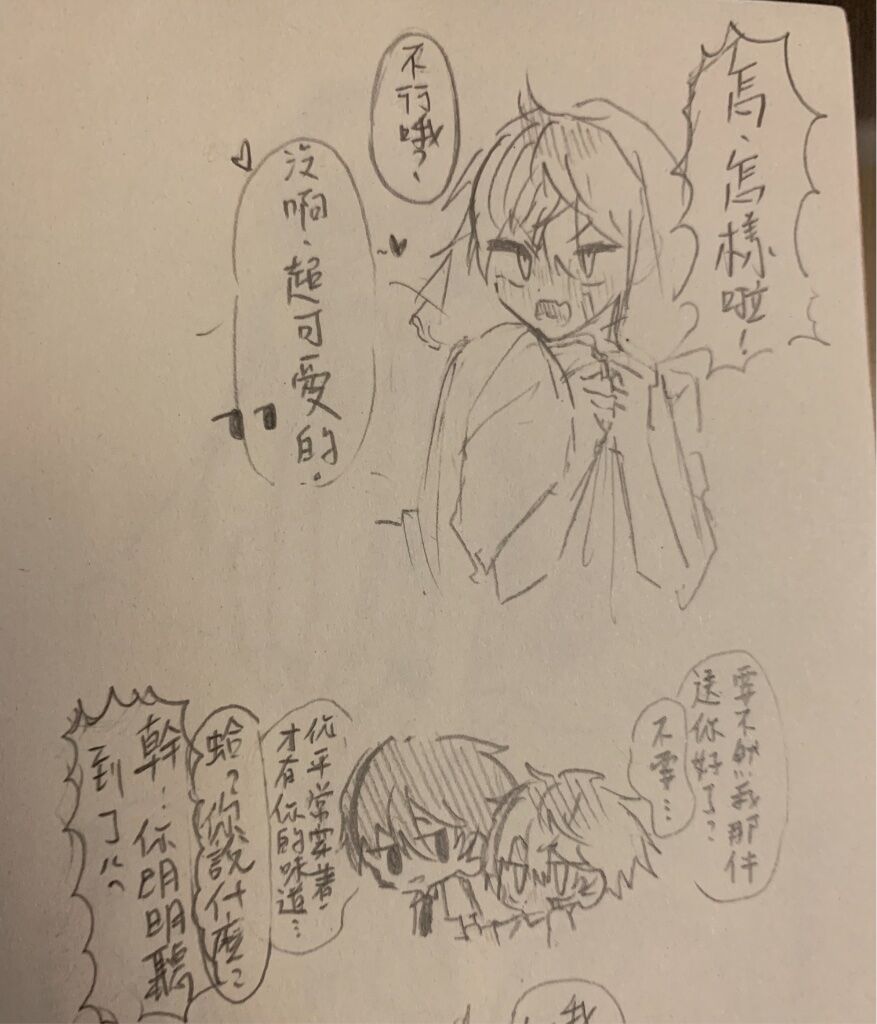 怎、怎樣啦！
不行哦？
沒啊、超可愛的。
要不然我那件
送你好了？
不要…
你平常穿著、
才有你的味道…
蛤？你說什麼？
幹！你明明聽
到了吧
我